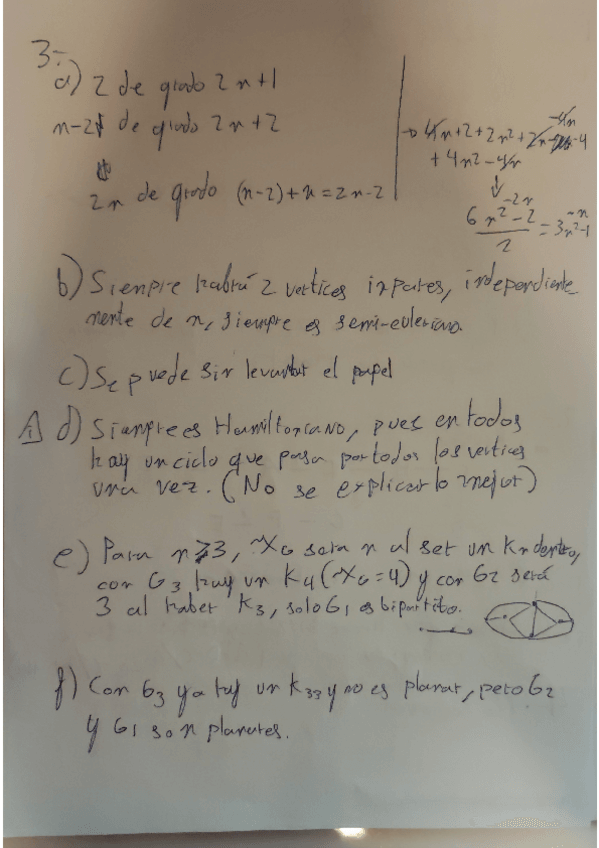 3-
a) 2 de grado 2n+1
n-2 de grado 2n+2
2n de grado (n-2)+n=2n-2
→ 4n+2+2n²+2n-4
+4n²-4n
-4n
↓ -2n
6n²-2 / 2 = 3n²-1
-n
b) Siempre habrá 2 vertices impares, independiente
mente de n, siempre es semi-euleriano.
c) Se puede sin levantar el papel
A) d) Siempre es Hamiltoniano, pues en todos
hay un ciclo que pasa por todos los vertices
una vez. (No se explicarlo mejor)
e) Para n≥3, XG sera n al ser un Kn dentro,
con G3 hay un K4 (XG=4) y con G2 será
3 al haber K3, solo G1 es bipartito.
f) Con G3 ya hay un K33 y no es planar, pero G2
y G1 son planares.